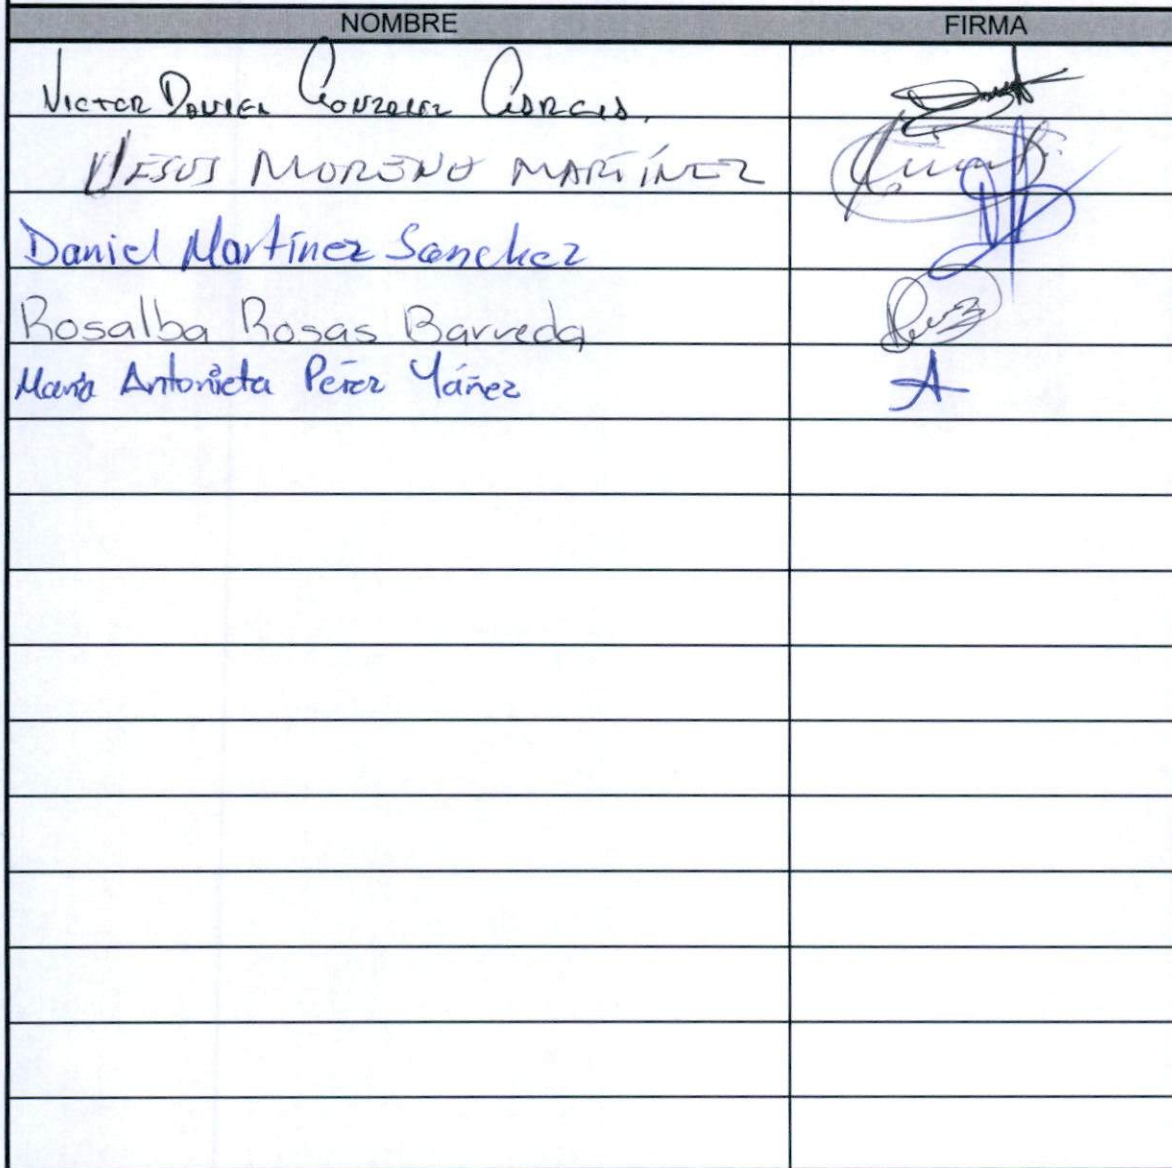 NOMBRE FIRMA
VICTOR DANIEL GONZALEZ GARCIA.
JESUS MORENO MARTÍNEZ
Daniel Martínez Sanchez
Rosalba Rosas Barreda
María Antonieta Pérez Yáñez A